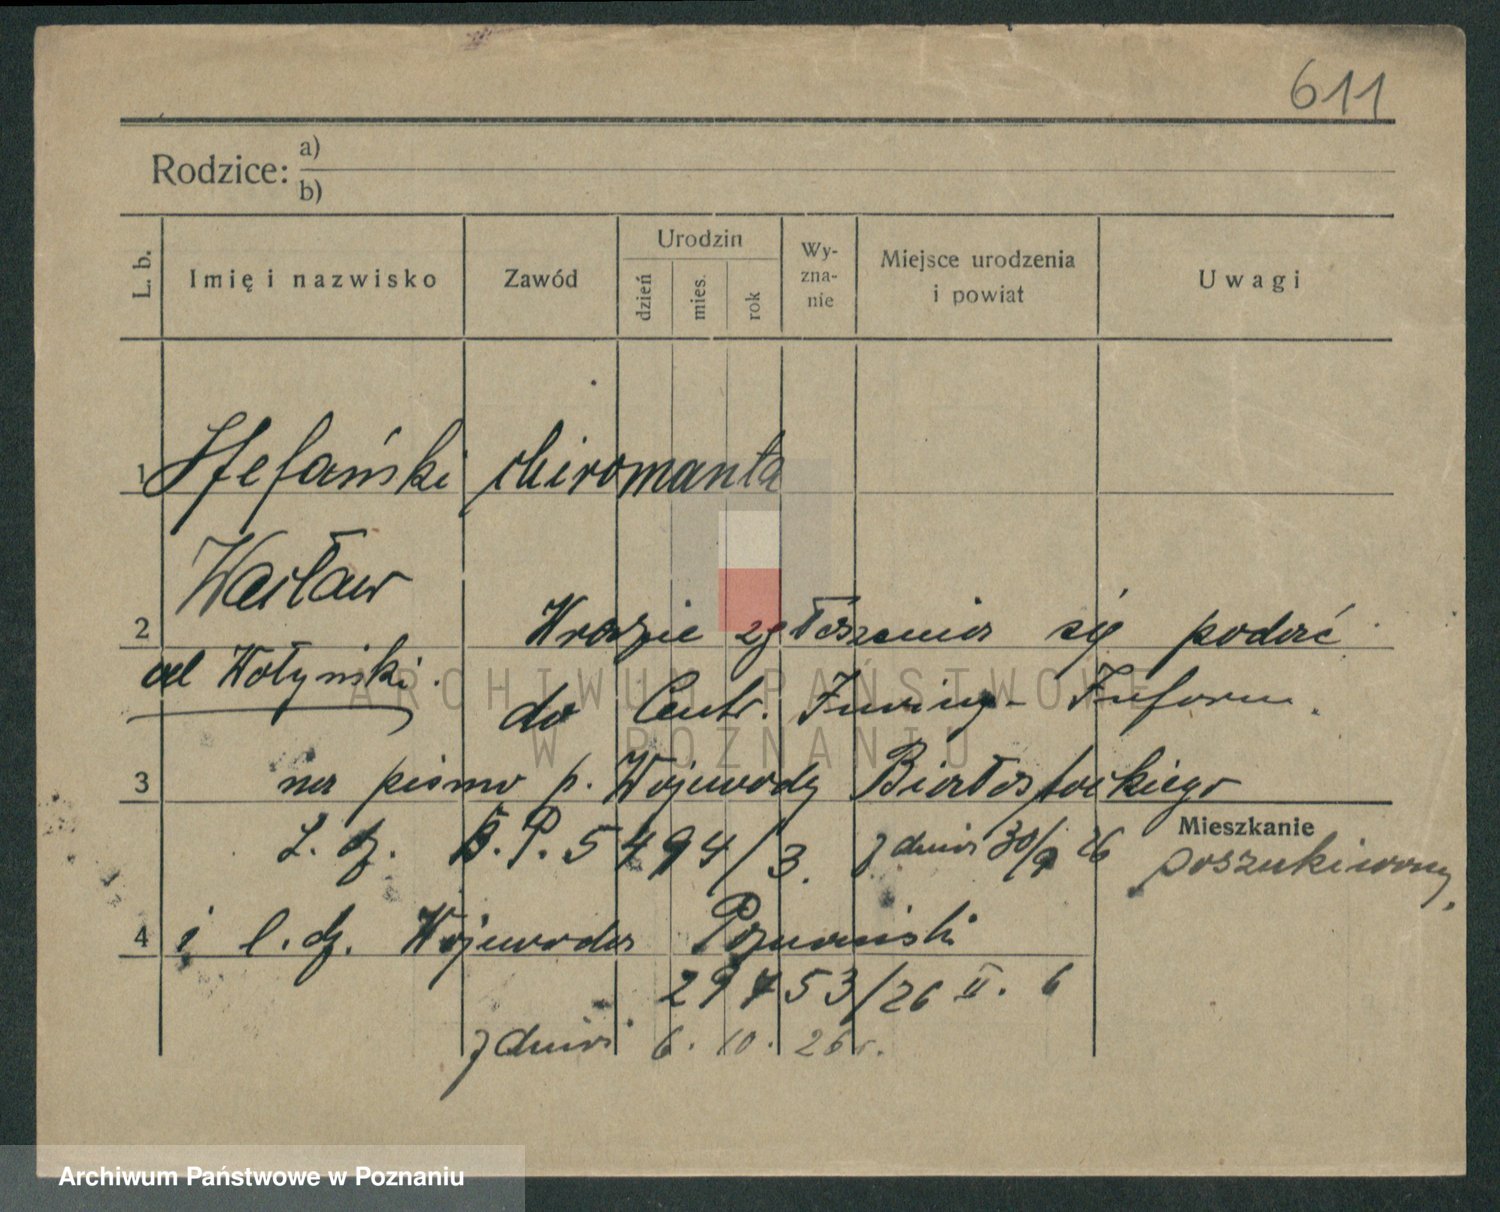 611
Rodzice:
a)
b)
L. b.
Imię i nazwisko
Zawód
Urodzin
dzień
mies.
rok
Wy-
zna-
nie
Miejsce urodzenia
i powiat
Uwagi
1 Stefański chiromanta
Wacław
2 W razie zgłoszenia się podać
al Wołyński.
do Centr. Inwig- Inform.
3 na pismo p. Wojewody Białostockiego
L. dz. B.P. 5494/3. z dnia 30/9 26
Mieszkanie
poszukiwany,
4 i l. dz. Wojewoda Poznański
29753/26 II. 6
z dnia 6. 10. 26 r.
ARCHIWUM PAŃSTWOWE
W POZNANIU
Archiwum Państwowe w Poznaniu